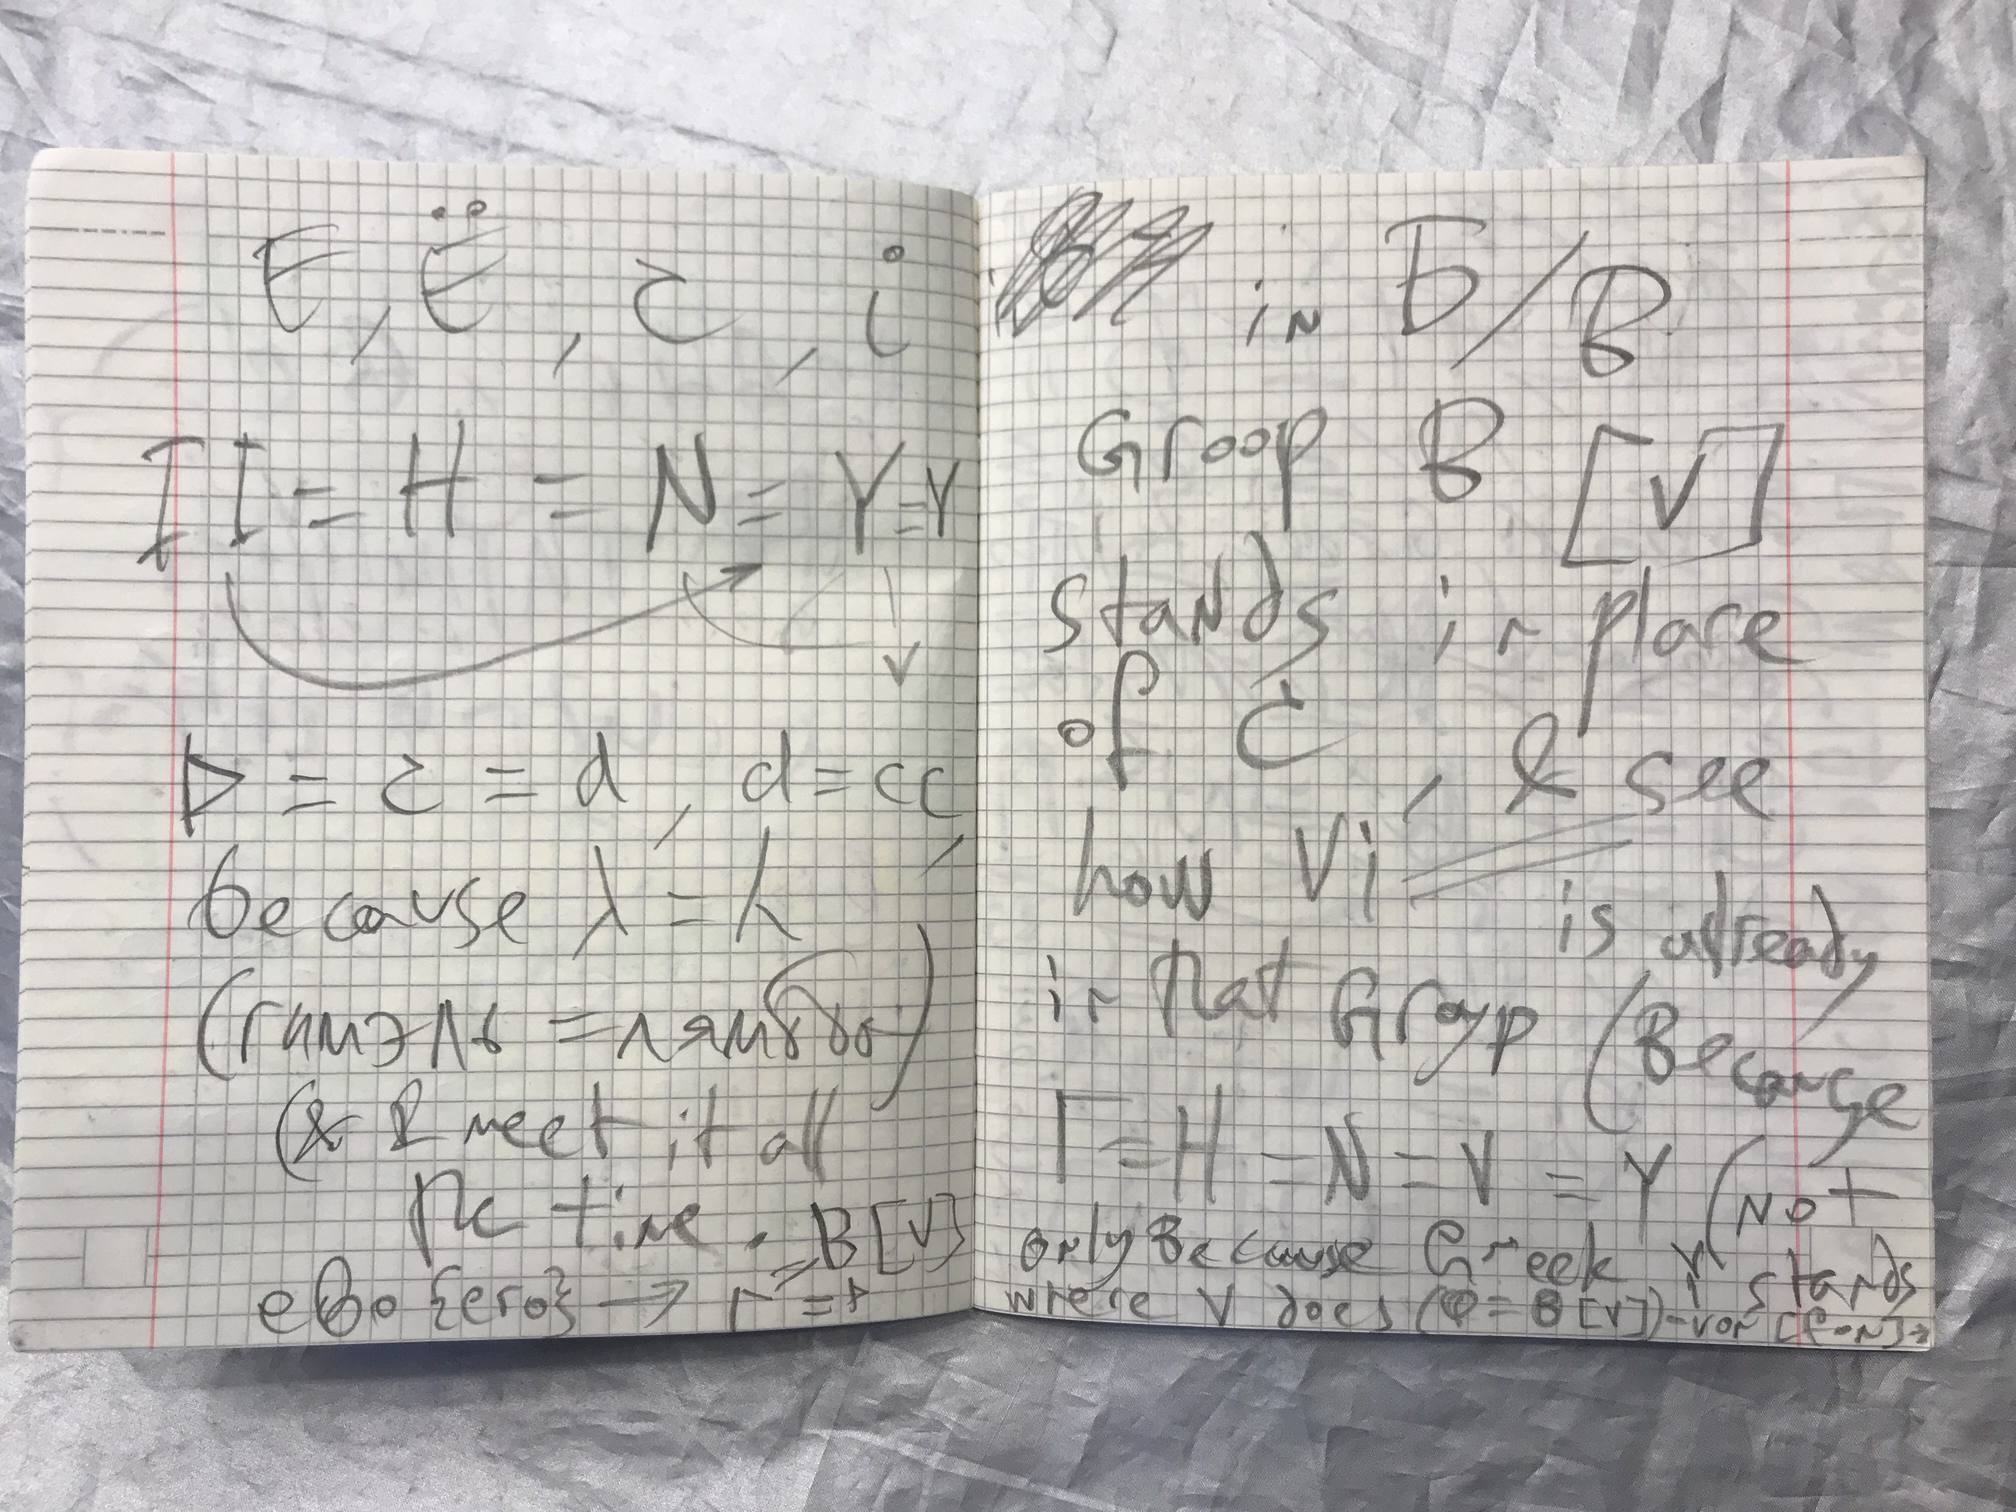 E, Ë, ට, i
II = H = N = Y = Y
V
D = ට = d, d = cc,
because λ = λ
(гимэль = лямбда)
(& I meet it all
the time.
eбo {ero} → г = в = B [V]
in Б/B
Groop B [V]
stands in place
of C, & see
how Vi is already
in that Group (Because
Г = H = N = V = Y (Not
only Because Greek Y stands
where V does (Φ = B [V]) - von [fon] →